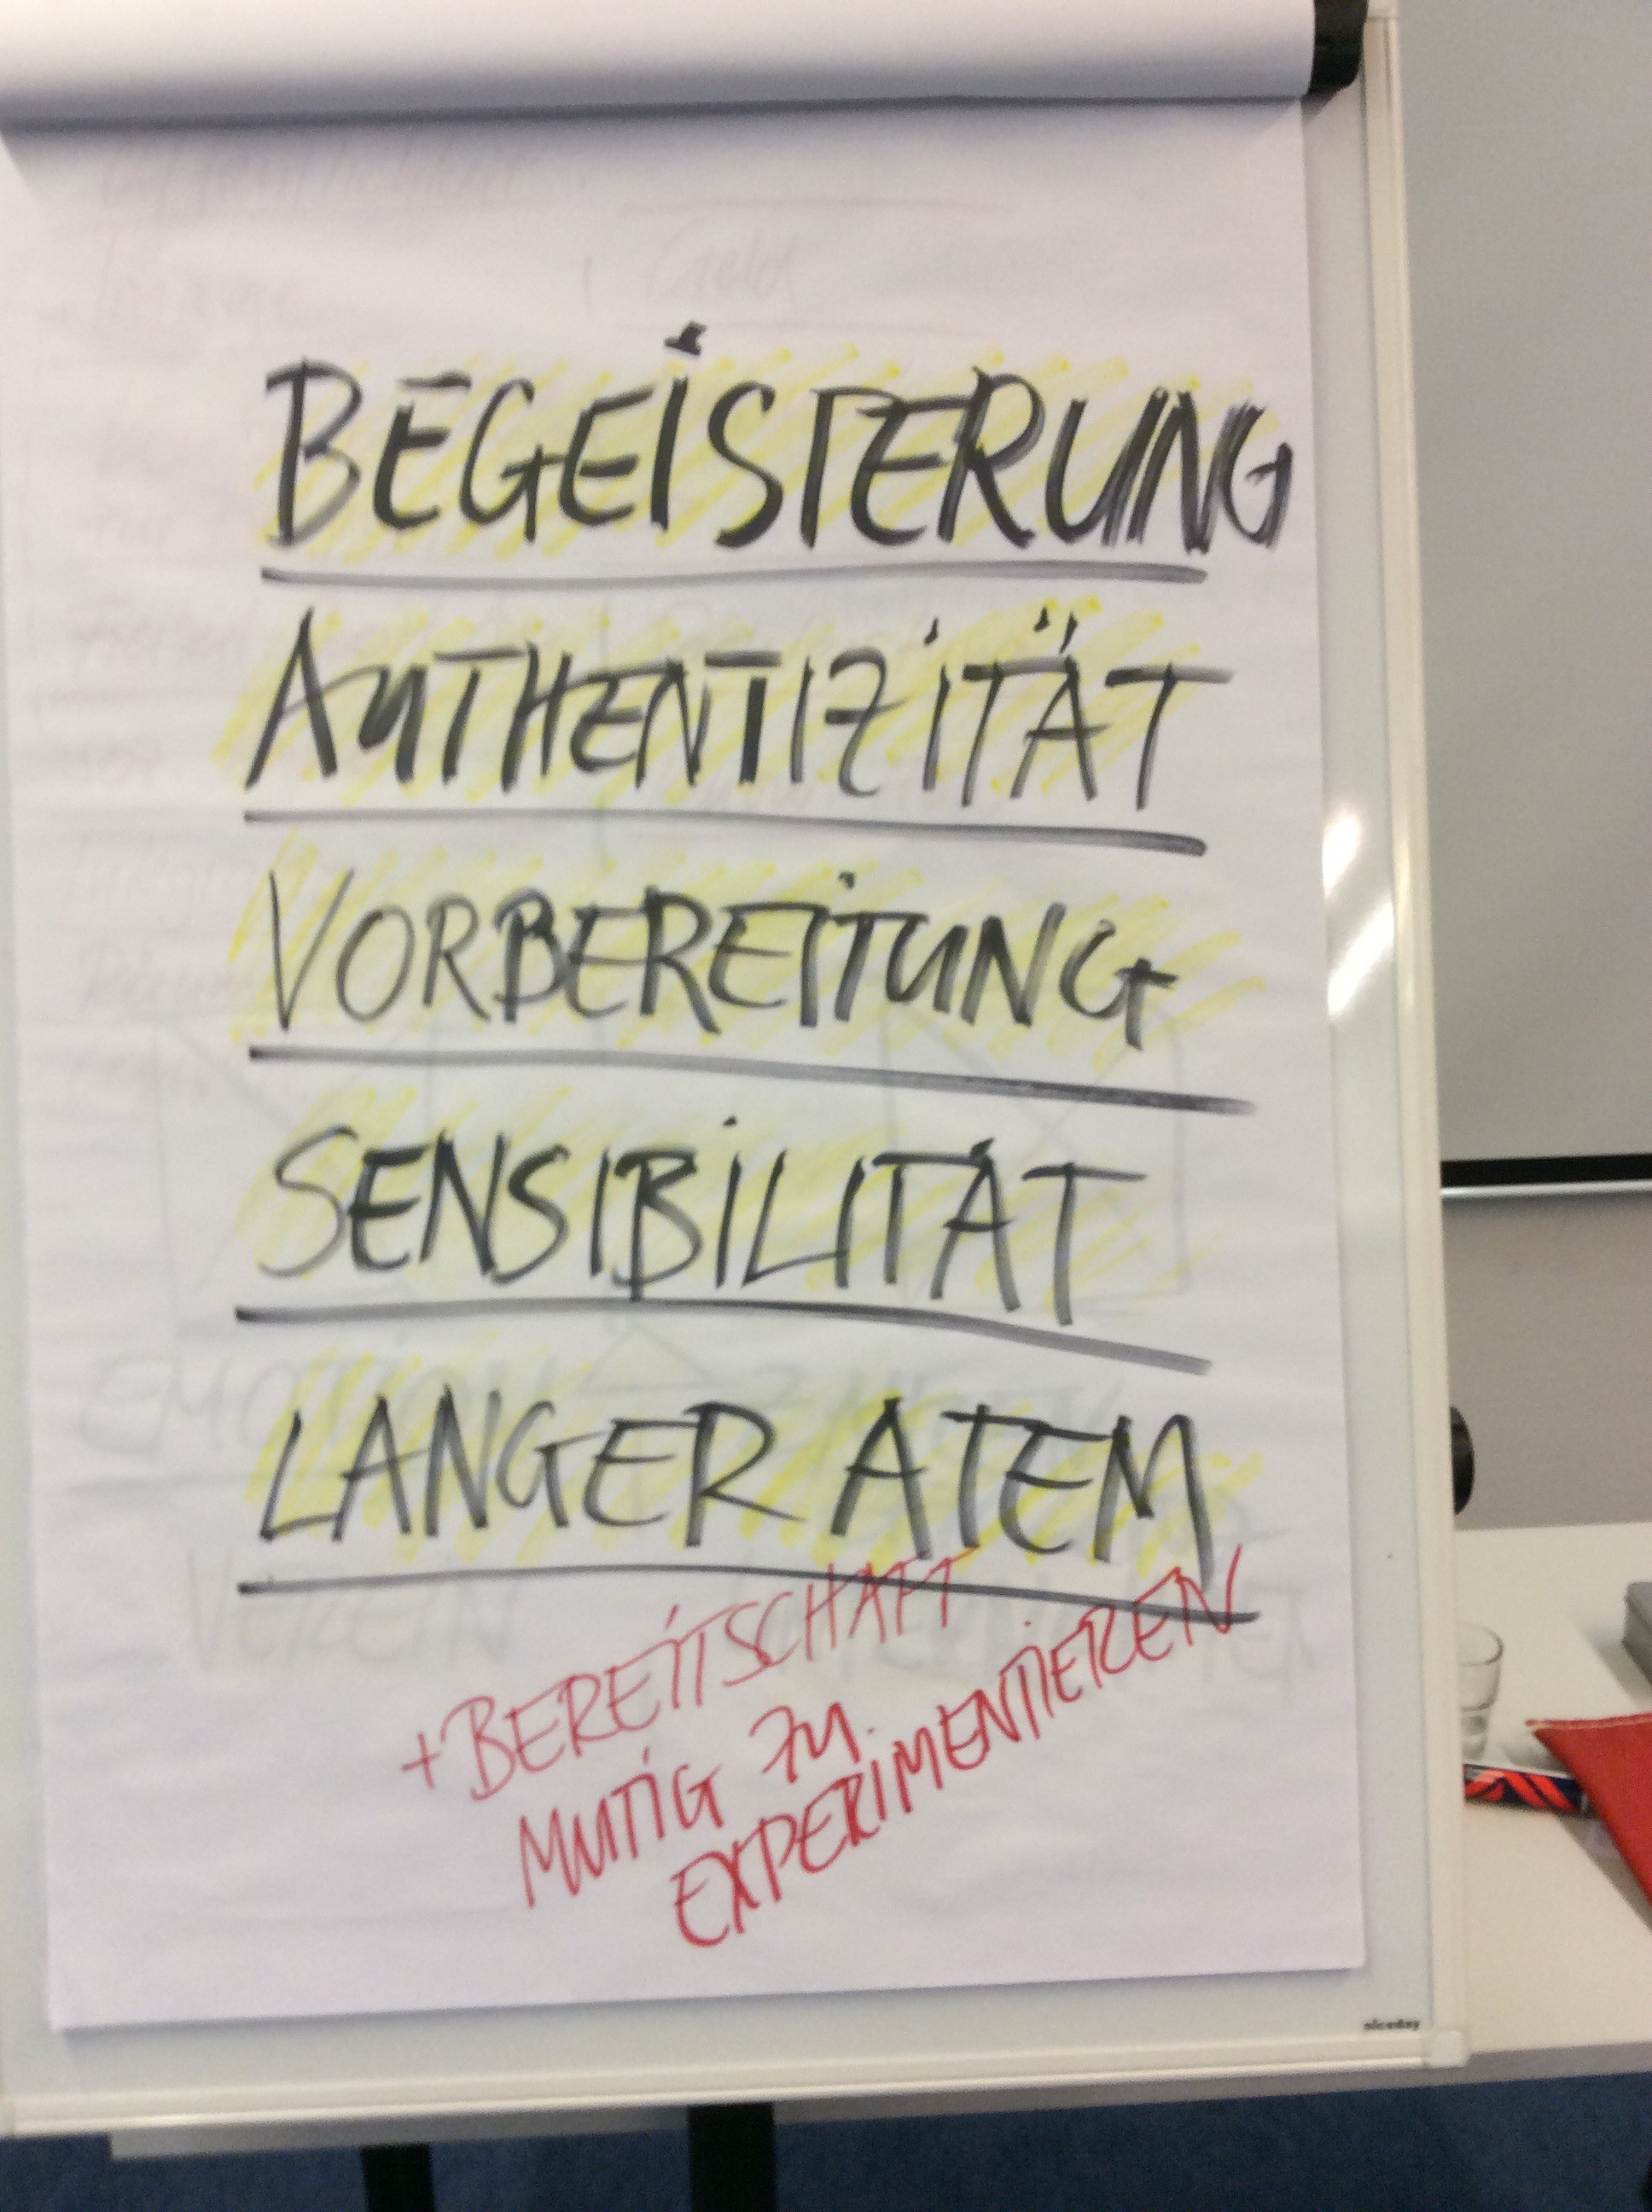 Geld
BEGEISTERUNG
AUTHENTIZITÄT
VORBEREITUNG
SENSIBILITÄT
EMOTION
LANGER ATEM
VEREIN
+BEREITSCHAFT
MUTIG ZU
EXPERIMENTIEREN
niceday